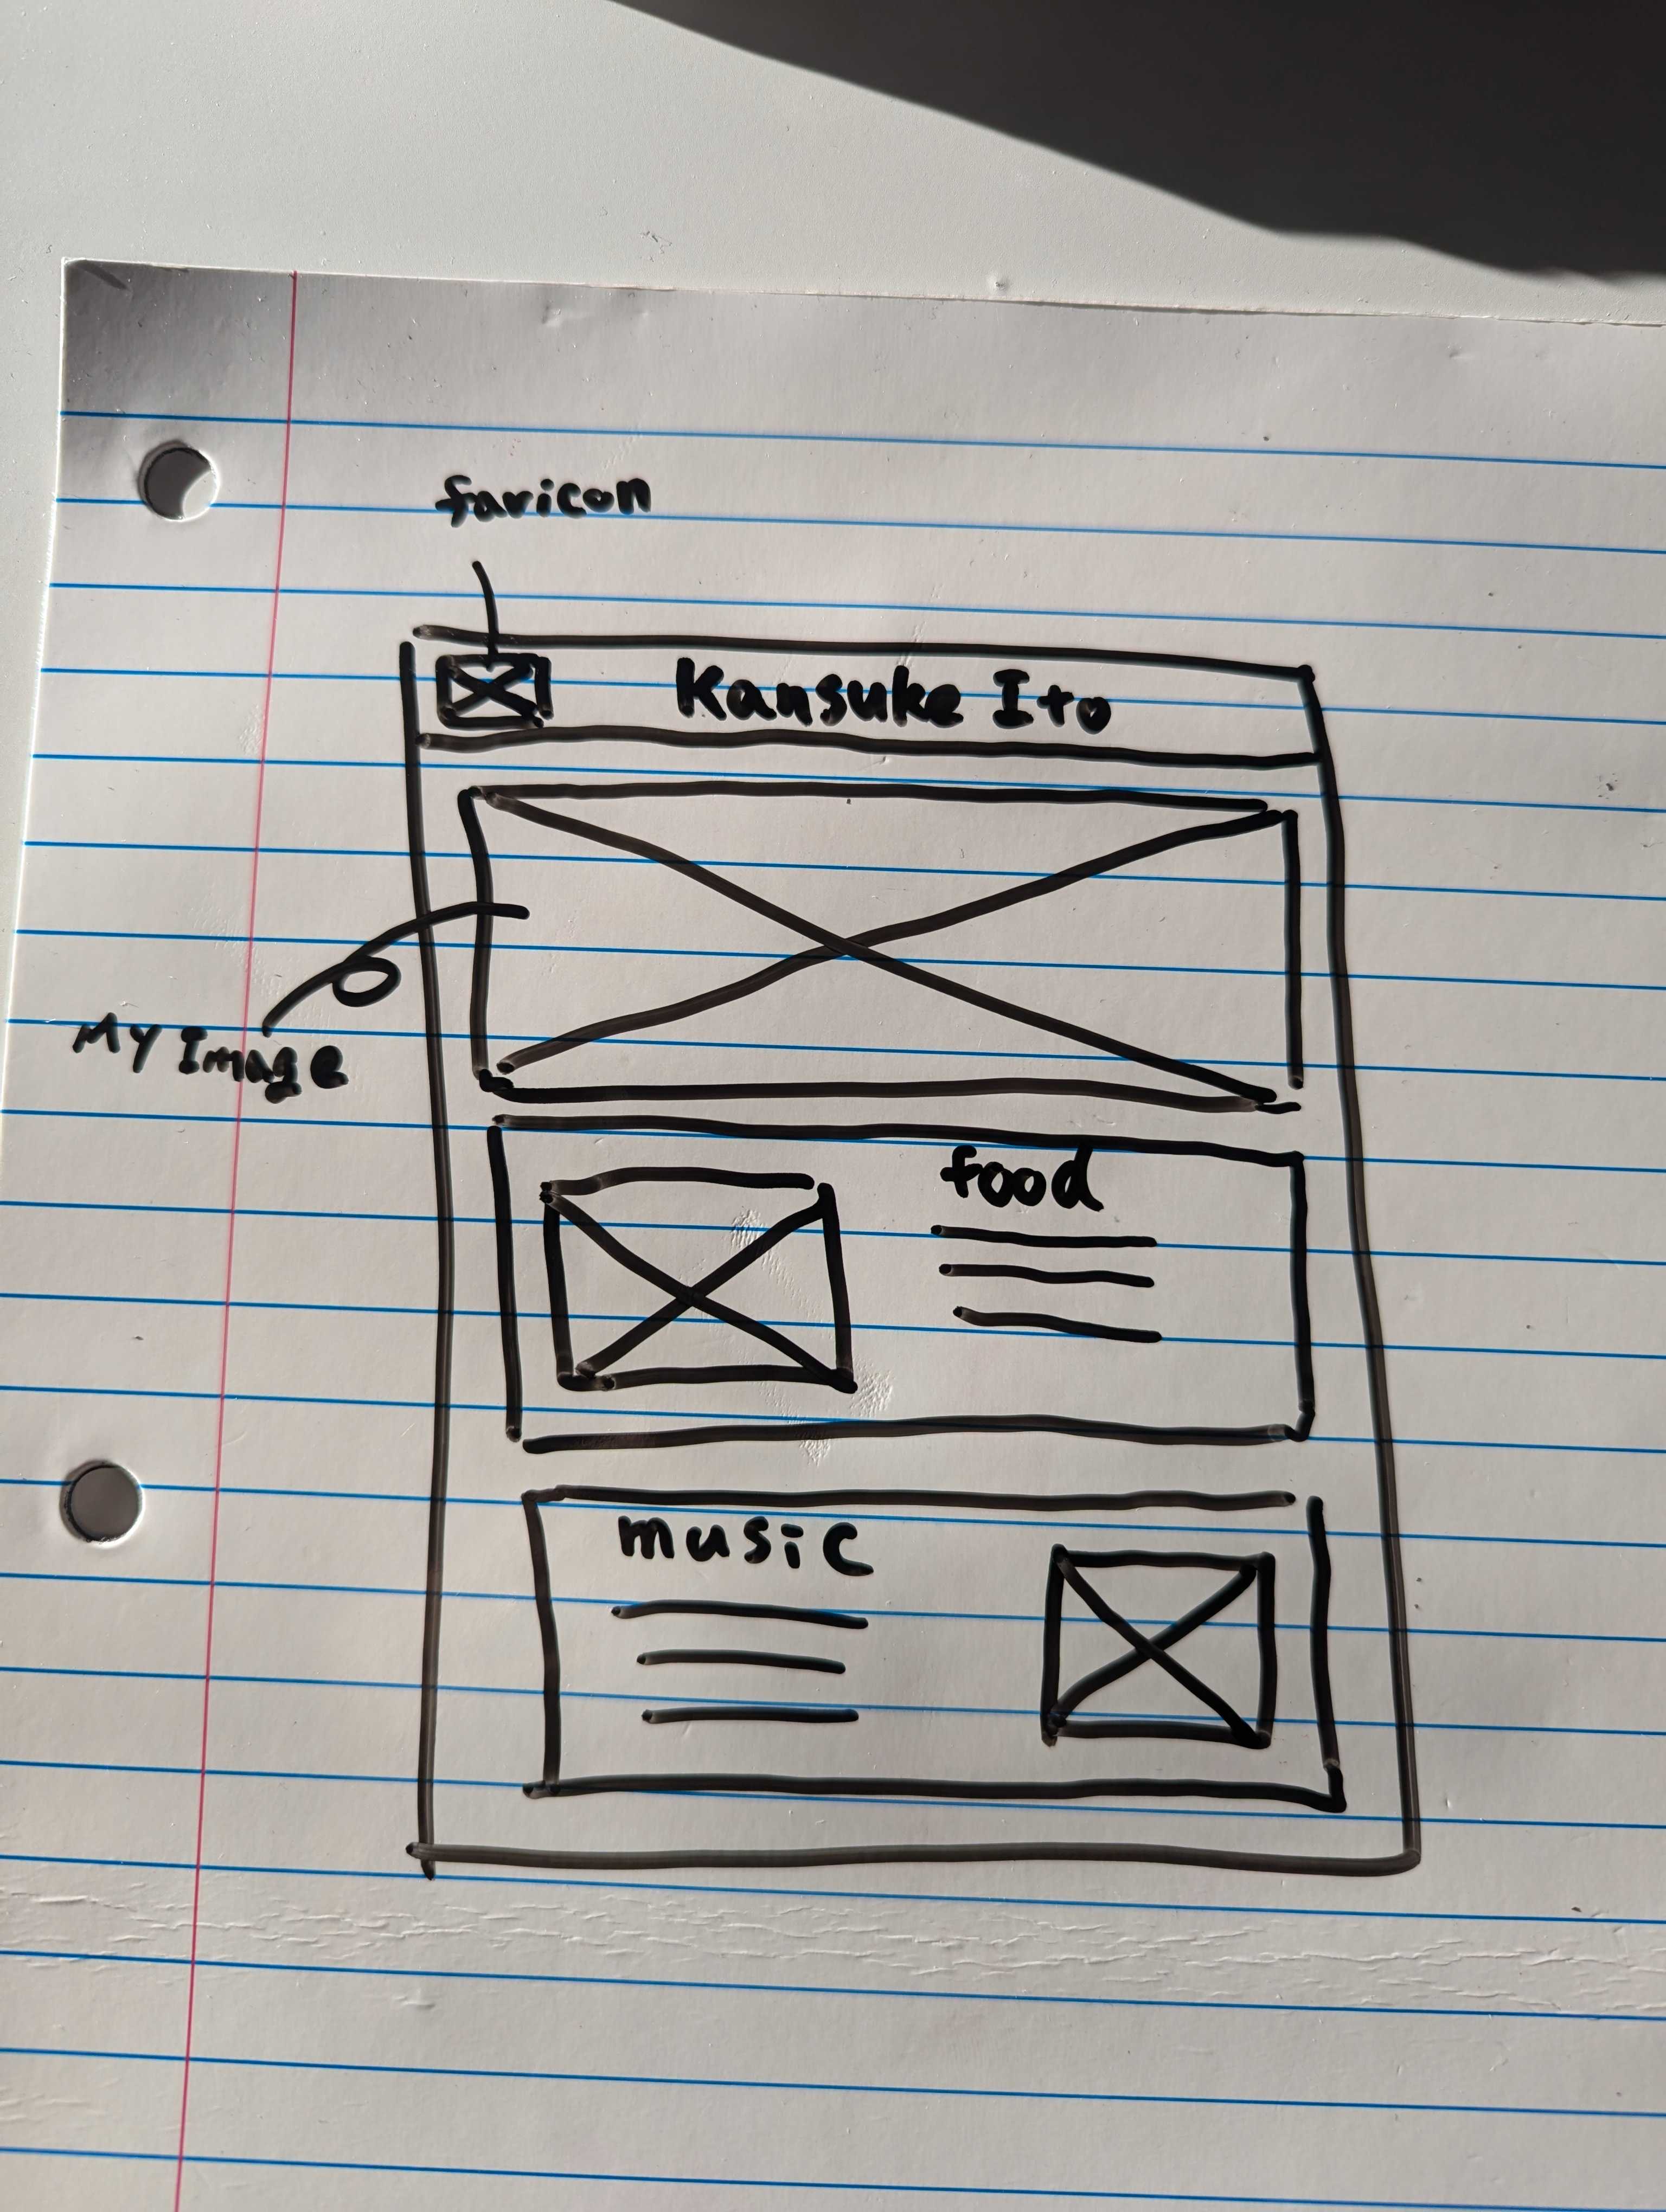 favicon
Kansuke Ito
My Image
food
music